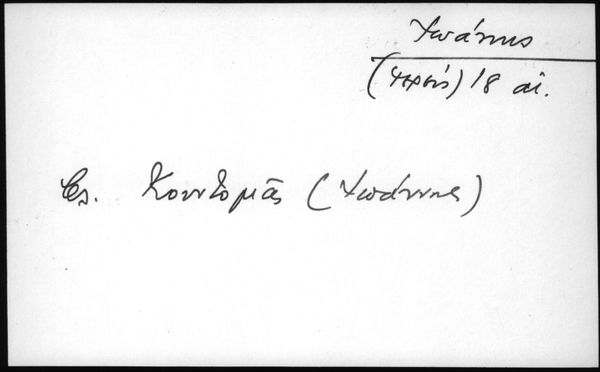 Ἰωάννης
(ἱερεύς) 18 αἰ.
Βλ. Κοντομᾶς (Ἰωάννης)